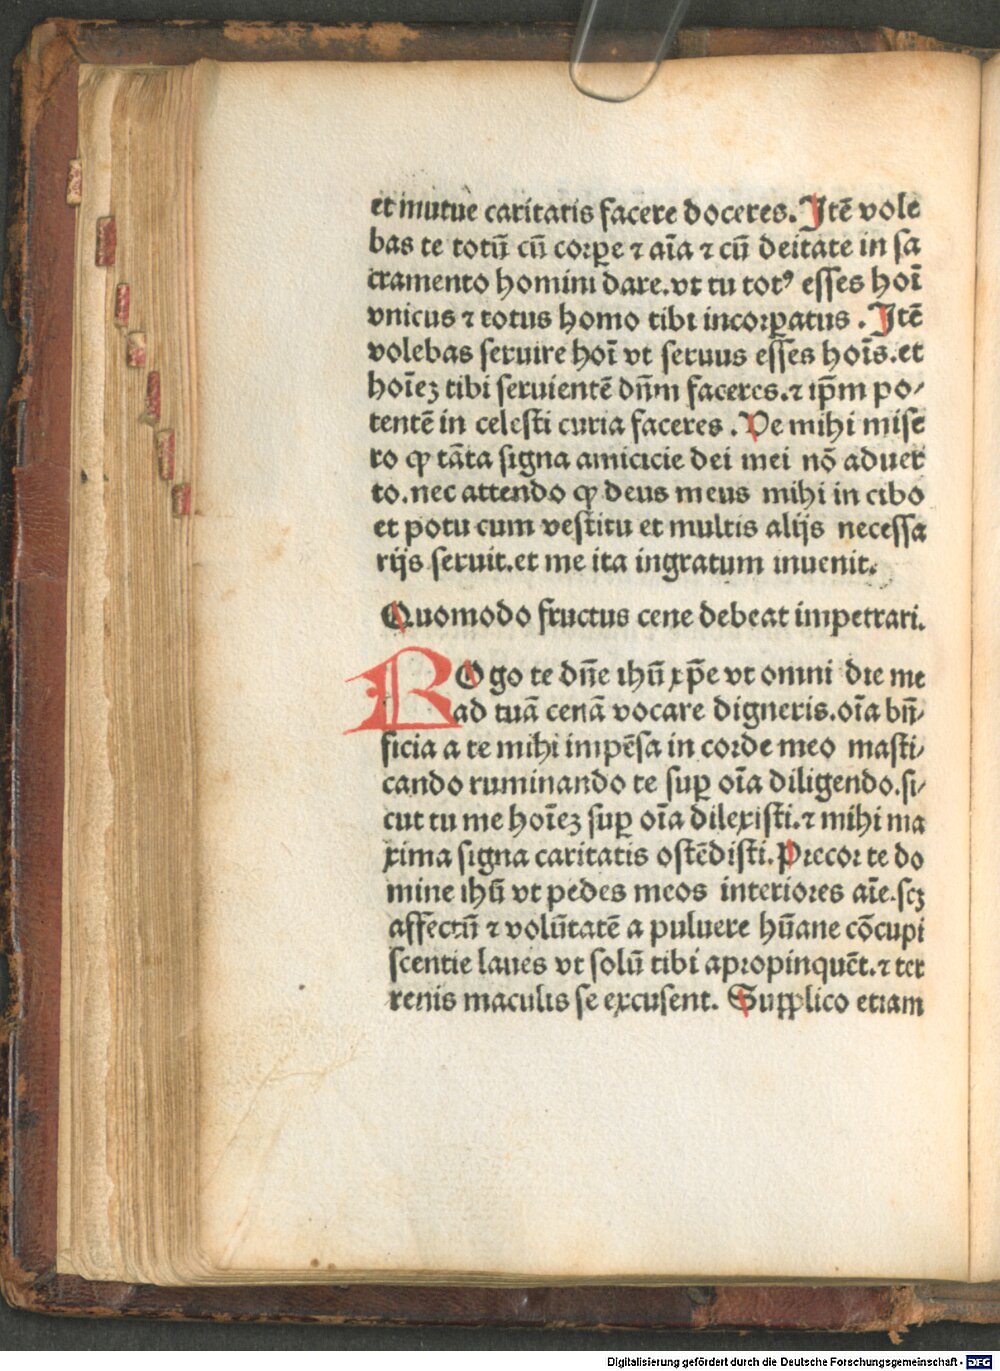 et mutue caritatis facere doceres. Itē vole
bas te totū cū corꝑe ⁊ aīa ⁊ cū deitate in sa
cramento homini dare. vt tu totꝰ esses hoī
vnicus ⁊ totus homo tibi incorꝑatus . Itē
volebas seruire hoī vt seruus esses hoīs. et
hoīeꝫ tibi seruientē dn̄m faceres. ⁊ ip̄m po⸗
tentē in celesti curia faceres . Ve mihi mise
ro ꝙ tāta signa amicicie dei mei nō aduer
to. nec attendo ꝙ deus meus mihi in cibo
et potu cum vestitu et multis alijs necessa
rijs seruit. et me ita ingratum inuenit.
Quomodo fructus cene debeat impetrari.
ROgo te dn̄e ihū xp̄e vt omni die me
ad tuā cenā vocare digneris. oīa bn̄⸗
ficia a te mihi impēsa in corde meo masti⸗
cando ruminando te suꝑ oīa diligendo. si⸗
cut tu me hoīeꝫ suꝑ oīa dilexisti. ⁊ mihi ma
xima signa caritatis ostēdisti. Precor te do
mine ihū vt pedes meos interiores aīe. scꝫ
affectū ⁊ volūtatē a puluere hūane cōcupi
scentie laues vt solū tibi apropinquēt. ⁊ ter
renis maculis se excusent. Supplico etiam
Digitalisierung gefördert durch die Deutsche Forschungsgemeinschaft - DFG